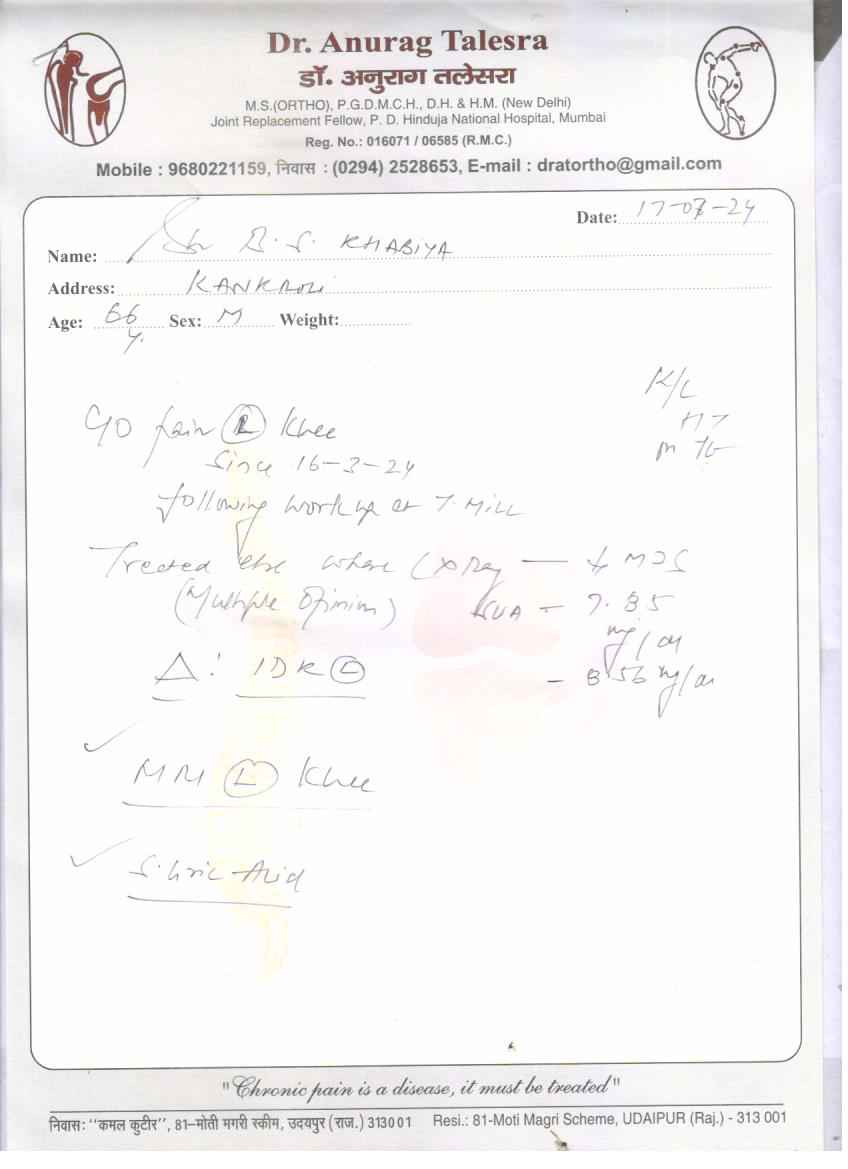 Dr. Anurag Talesra
डॉ. अनुराग तलेसरा
M.S.(ORTHO), P.G.D.M.C.H., D.H. & H.M. (New Delhi)
Joint Replacement Fellow, P. D. Hinduja National Hospital, Mumbai
Reg. No.: 016071 / 06585 (R.M.C.)
Mobile : 9680221159, निवास : (0294) 2528653, E-mail : dratortho@gmail.com
Date: 17-07-24
Name: B.S. KHABIYA
Address: KANKROLI
Age: 66 y. Sex: M Weight:
K/C
HT
C/O pain Knee
Since 16-3-24
following workup at T. Mill
Treated else where (X Ray
(Multiple Opinion)
SUA - 7.85
mg/dl
- 8.56 mg/dl
Δ: IDK L
MRI L Knee
S. Uric Acid
Mobility is
"Chronic pain is a disease, it must be treated"
निवास: "कमल कुटीर", 81-मोती मगरी स्कीम, उदयपुर (राज.) 313001 Resi.: 81-Moti Magri Scheme, UDAIPUR (Raj.) - 313 001